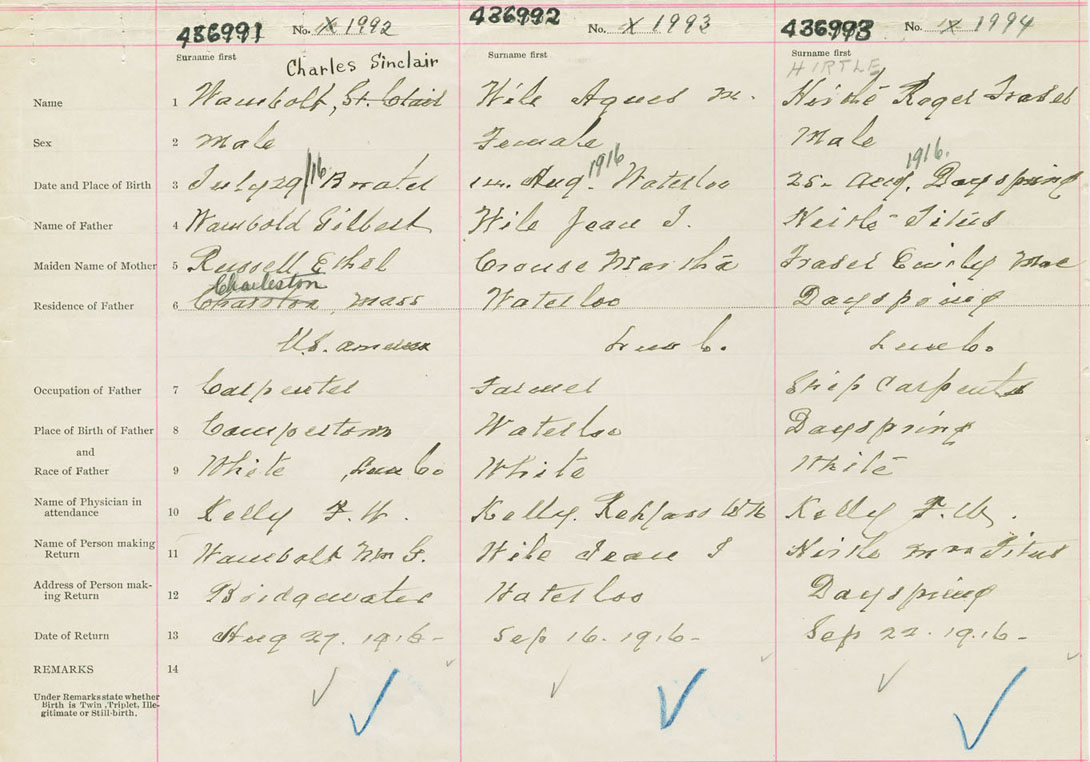 436991 No. X 1992 436992 No. X 1993 436993 No. IX 1994
Surname first Surname first Surname first
Charles Sinclair HIRTLE
Name 1 Wambolt, St. Clair Wile Agnes M. Hirtle Roger Fraser
Sex 2 Male Female Male
Date and Place of Birth 3 July 29/16 B water 14. Aug. 1916 Waterloo 25- Aug. 1916. Dayspring
Name of Father 4 Wambold Gilbert Wile Jean I. Hirtle Titus
Maiden Name of Mother 5 Russell Ethel Crouse Martha Fraser Emily Mae
Charleston
Residence of Father 6 Mass Waterloo Dayspring
U.S. America Lun C. Lun Co.
Occupation of Father 7 Carpenter Farmer Ship Carpenter
Place of Birth of Father 8 Waterloo Dayspring
and
Race of Father 9 White , Lun Co White White
Name of Physician in
attendance 10 Kelly F. W. Kelly. W H Kelly F. W.
Name of Person making
Return 11 Wambolt Wm G. Wile Jean I Hirtle Mrs Titus
Address of Person mak-
ing Return 12 Bridgewater Waterloo Dayspring
Date of Return 13 Aug 27. 1916- Sep 16. 1916- Sep 22. 1916-
REMARKS 14
Under Remarks state whether
Birth is Twin, Triplet, Ille-
gitimate or Still-birth.